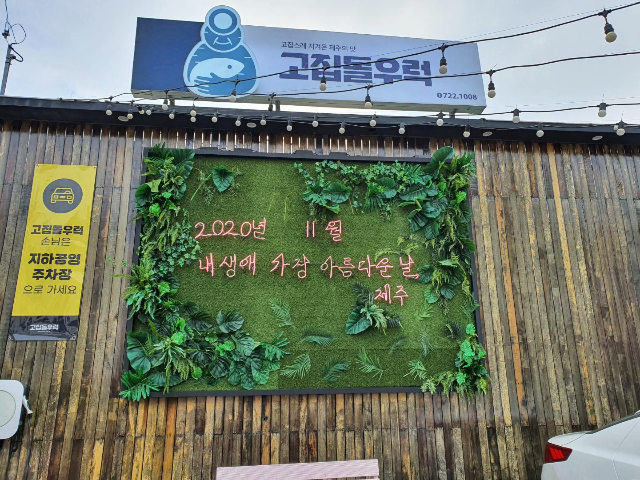 고집스레 지켜온 제주의 맛
고집돌우럭
722.1008
2020년 11월
내 생애 가장 아름다운 날,
제주
고집돌우럭
손님은
지하공영
주차장
으로 가세요
고집돌우럭